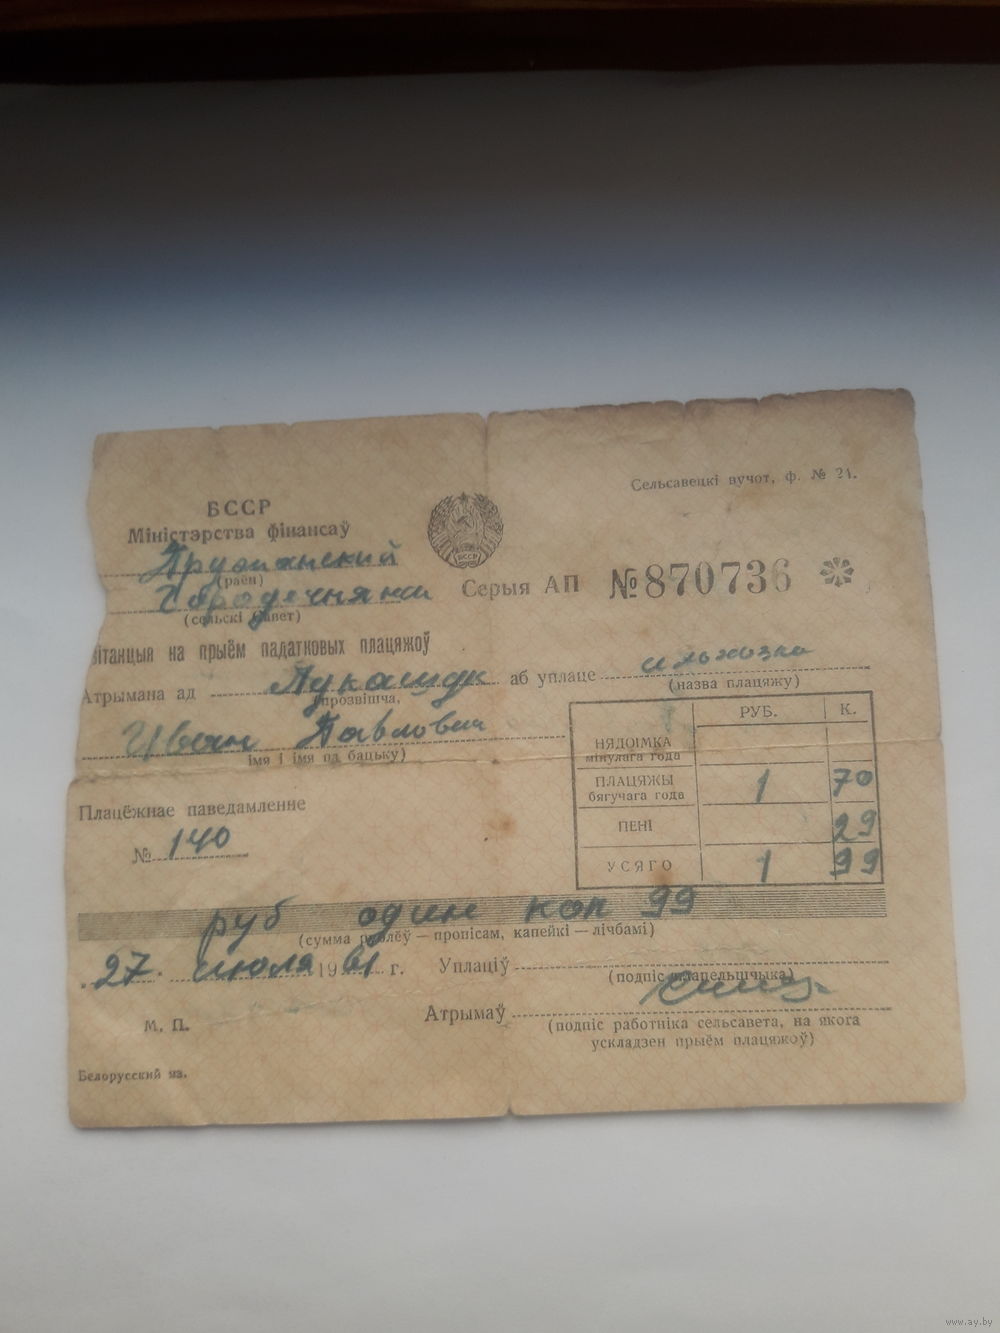 Сельсавецкі вучот, ф. № 21.
БССР
Міністэрства фінансаў
БССР
(раён)
Серыя АП №870736
(сельскі Савет)
вітанцыя на прыём падатковых плацяжоў
Атрымана ад Лукашук аб уплаце
(прозвішча, (назва плацяжу)
Иван Павлович
імя і імя па бацьку)
РУБ. К.
НЯДОІМКА
мінулага года
ПЛАЦЯЖЫ
бягучага года 1 70
ПЕНІ 29
УСЯГО 1 99
Плацёжнае паведамленне
№ 140
руб один коп 99
(сумма рублёў — пропісам, капейкі — лічбамі)
27. июля 1961 г. Уплаціў
(подпіс плацельшчыка)
М. П. Атрымаў
(подпіс работніка сельсавета, на якога
ускладзен прыём плацяжоў)
Белорусский яз.
www.ay.by